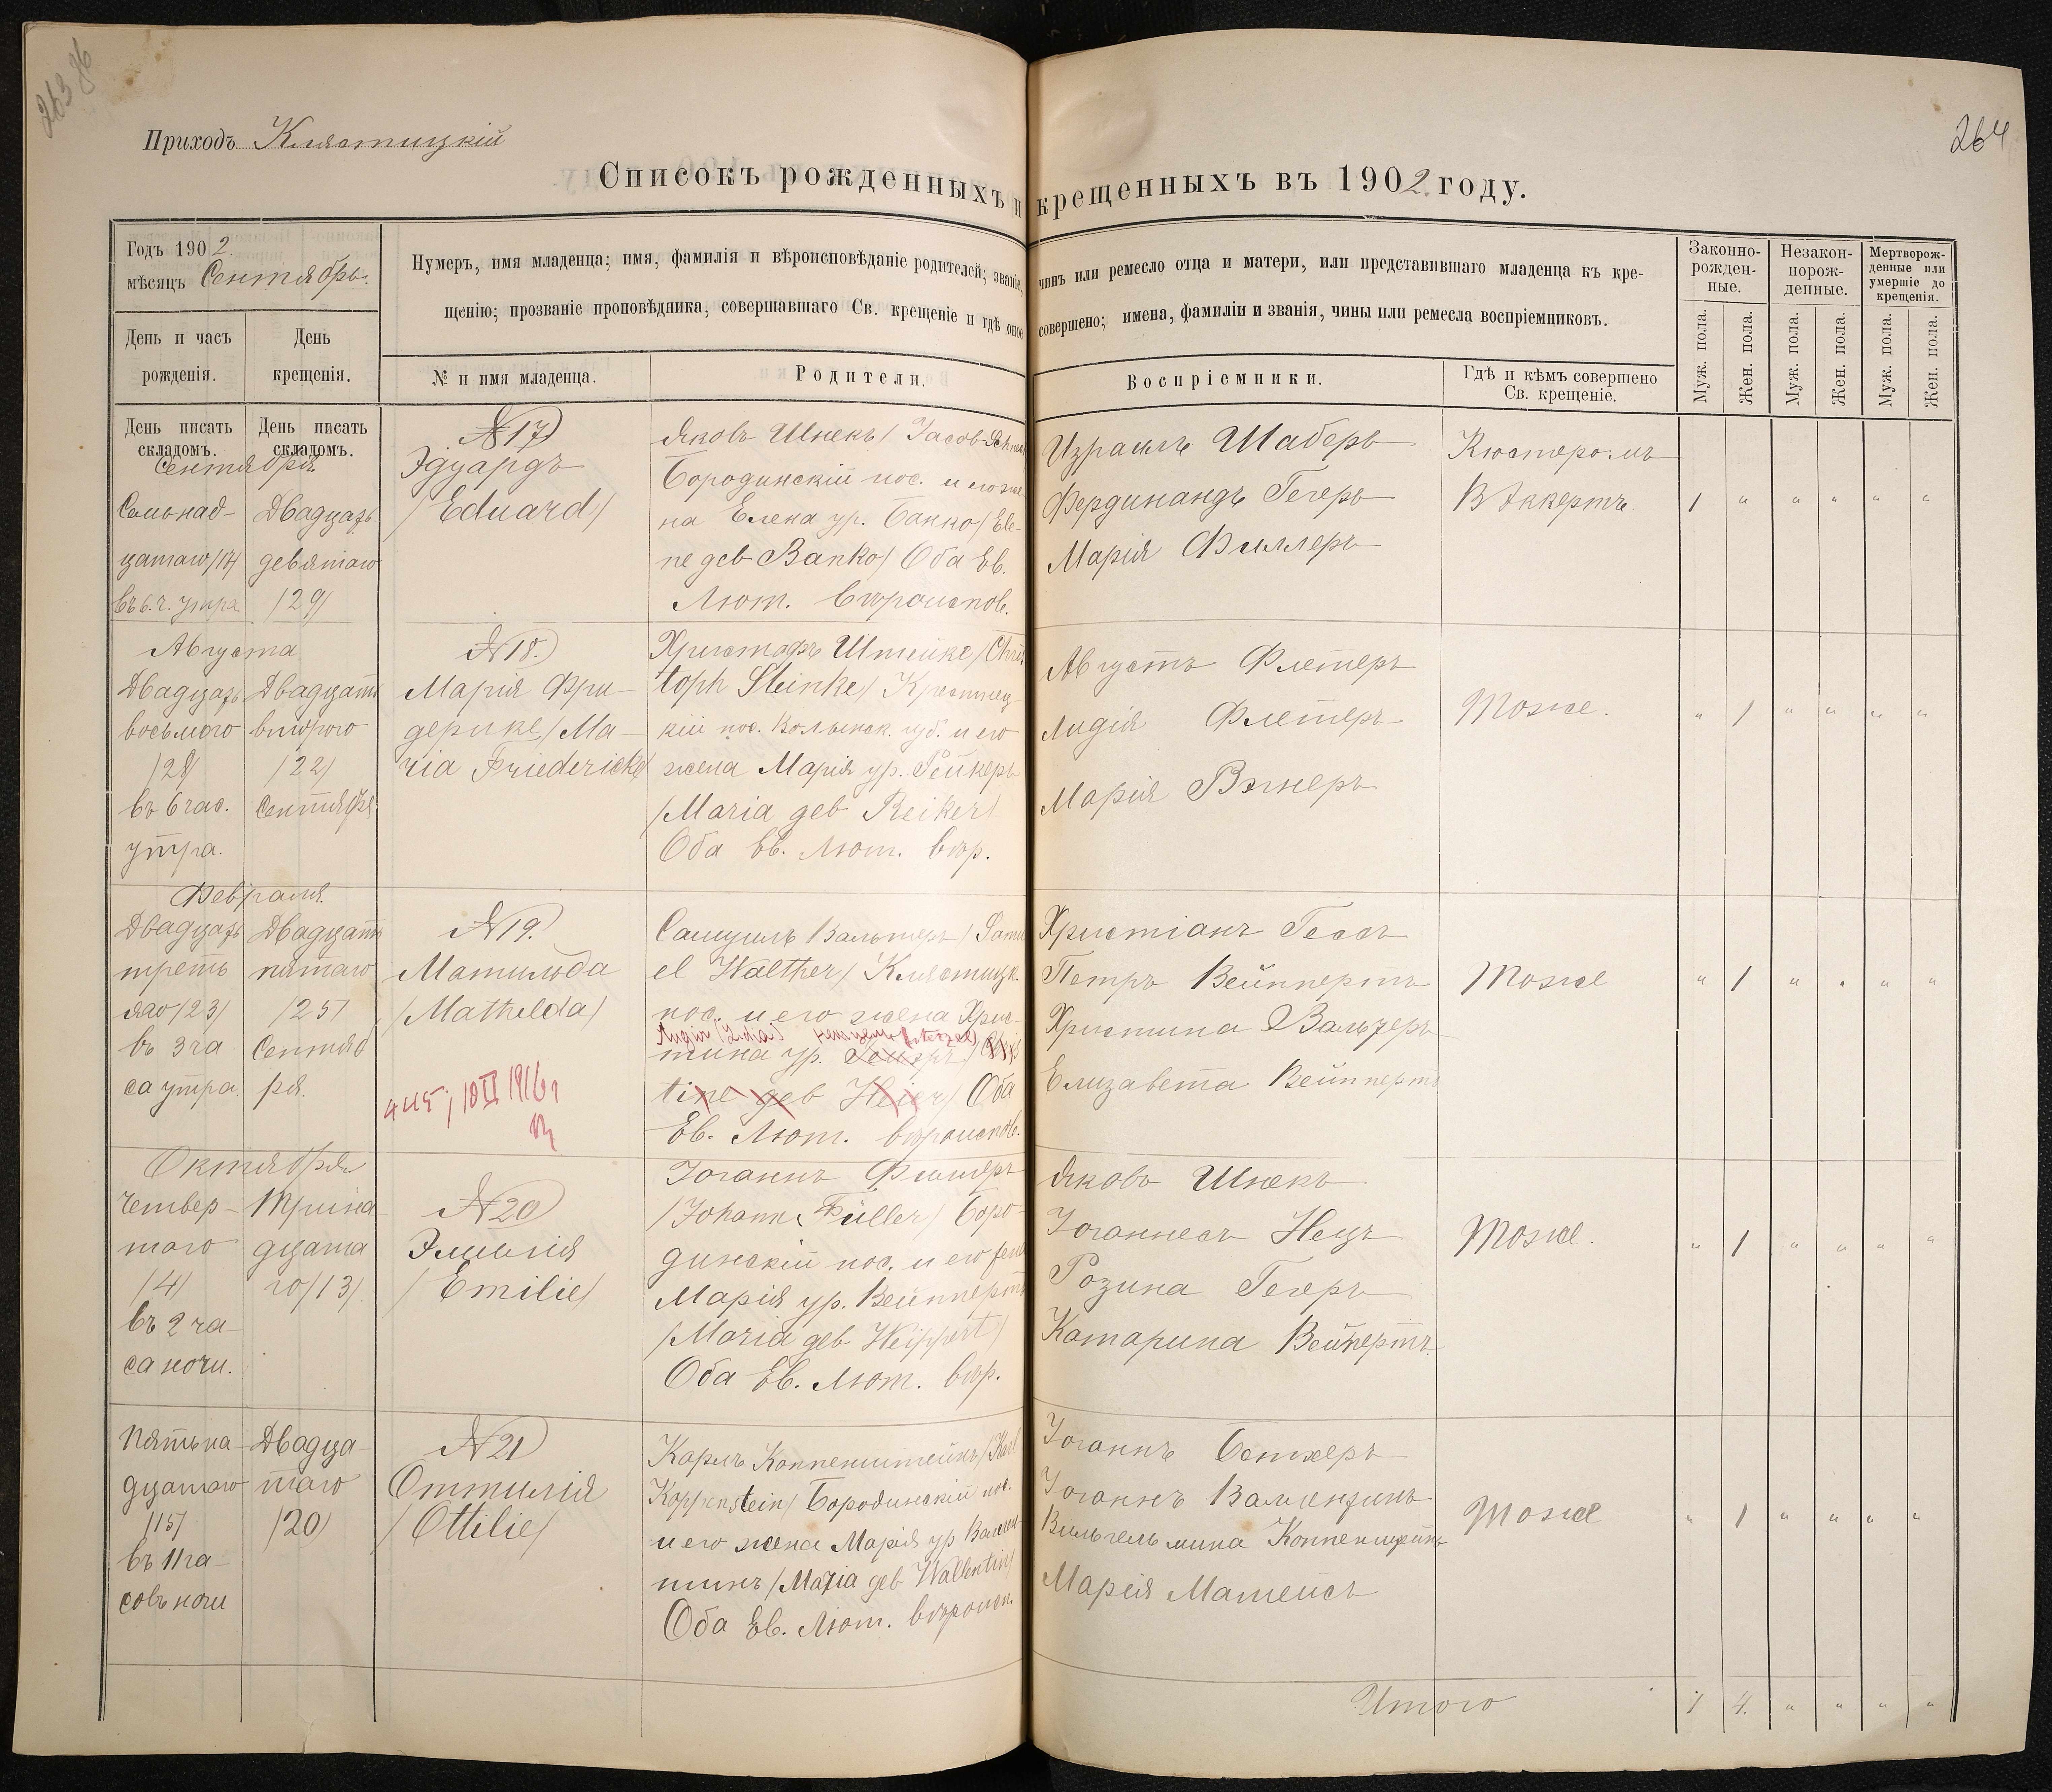 263 об
264
Приходъ Клястицкій
Списокъ рожденныхъ и крещенныхъ въ 1902 году.
Годъ 1902
мѣсяцъ Сентябрь.
День и часъ рожденія.
День крещенія.
Нумеръ, имя младенца; имя, фамилія и вѣроисповѣданіе родителей; званіе, чинъ или ремесло отца и матери, или представившаго младенца къ кре-
щенію; прозваніе проповѣдника, совершавшаго Св. крещеніе и гдѣ оное совершено; имена, фамиліи и званія, чины или ремесла воспріемниковъ.
№ и имя младенца.
Родители.
Воспріемники.
Гдѣ и кѣмъ совершено
Св. крещеніе.
Законно-
рожден-
ные.
Незакон-
норож-
денные.
Мертворож-
денные или
умершіе до
крещенія.
Муж. пола.
Жен. пола.
Муж. пола.
Жен. пола.
Муж. пола.
Жен. пола.
День писать
складомъ.
День писать
складомъ.
Сентября
Семьнад-
цатаго /17/
въ 6 ч. утра
Двадцать
девятаго
/29/
№ 17
Эдуардъ
/Eduard/
Яковъ Шнекъ / Jacob
Бородинскій пос. и его же-
на Елена ур. Банко / Ele-
ne geb Banko / Оба Ев.
Лют. вѣроиспов.
Израиль Шаберъ
Фердинандъ Гегеръ
Марія Филлеръ
Кюстеромъ
В Аккертъ.
1 " " " " "
Августа
Двадцать
восьмого
/28/
въ 6 час.
утра.
Двадцать
второго
/22/
Сентября
№ 18.
Марія Фри-
дерике / Ma-
ria Friedericke
Христофъ Штейке / Chris
toph Steinke /
кій пос. Волынск. губ. и его
жена Марія ур. Рейкеръ
/Maria geb Reiker/
Оба Ев. Лют. вѣр.
Августъ Флетеръ
Лидія Флетеръ
Марія Вэгнеръ
Тоже.
" 1 " " " "
Февраля.
Двадцать
треть
яго /23/
въ 3 ча
са утра
Двадцать
пятаго
/25/
Сентяб
ря.
№ 19.
Матильда
/Mathelda/
445; 10 II 1916 г
Самуилъ Вальтеръ / Samu
el Walther / Клястицк.
пос. и его жена Хрис-
Лидія (Lidia)
тина ур.
tine geb Heier / Оба
Ев. Лют. вѣроиспов.
Христіанъ Гессъ
Петръ Вейппертъ
Христина Вальтеръ
Елизавета Вейппертъ
Тоже
" 1 " " " "
Октября
Четвер-
таго
/4/
въ 2 ча-
са ночи.
Трина
дцата
го /13/.
№ 20
Эмилія
/Emilie/
Іоганнъ Филлеръ
/Johann Füller/ Боро-
динскій пос. и его жена
Марія ур. Вейппертъ
/Maria geb Weippert/
Оба Ев. Лют. вѣр.
Яковъ Шнекъ
Іоганнесъ Нецъ
Розина Гегеръ
Катарина Вейпертъ.
Тоже.
" 1 " " " "
Пятьна-
дцатаго
/15/
въ 11 ча-
совъ ночи
Двадца-
таго
/20/
№ 21
Оттилія
/Ottilie/
Карлъ Коппенштейнъ / Karl
Koppenstein / Бородинскій пос.
и его жена Марія ур Вален-
тинъ / Maria geb Wallentin/
Оба Ев. Лют. вѣроисп.
Іоганнъ Бетхеръ
Іоганнъ Валентинъ
Вильгельмина Коппенштейнъ
Марія Матейсъ
Тоже
" 1 " " " "
Итого
1 4. " " " "